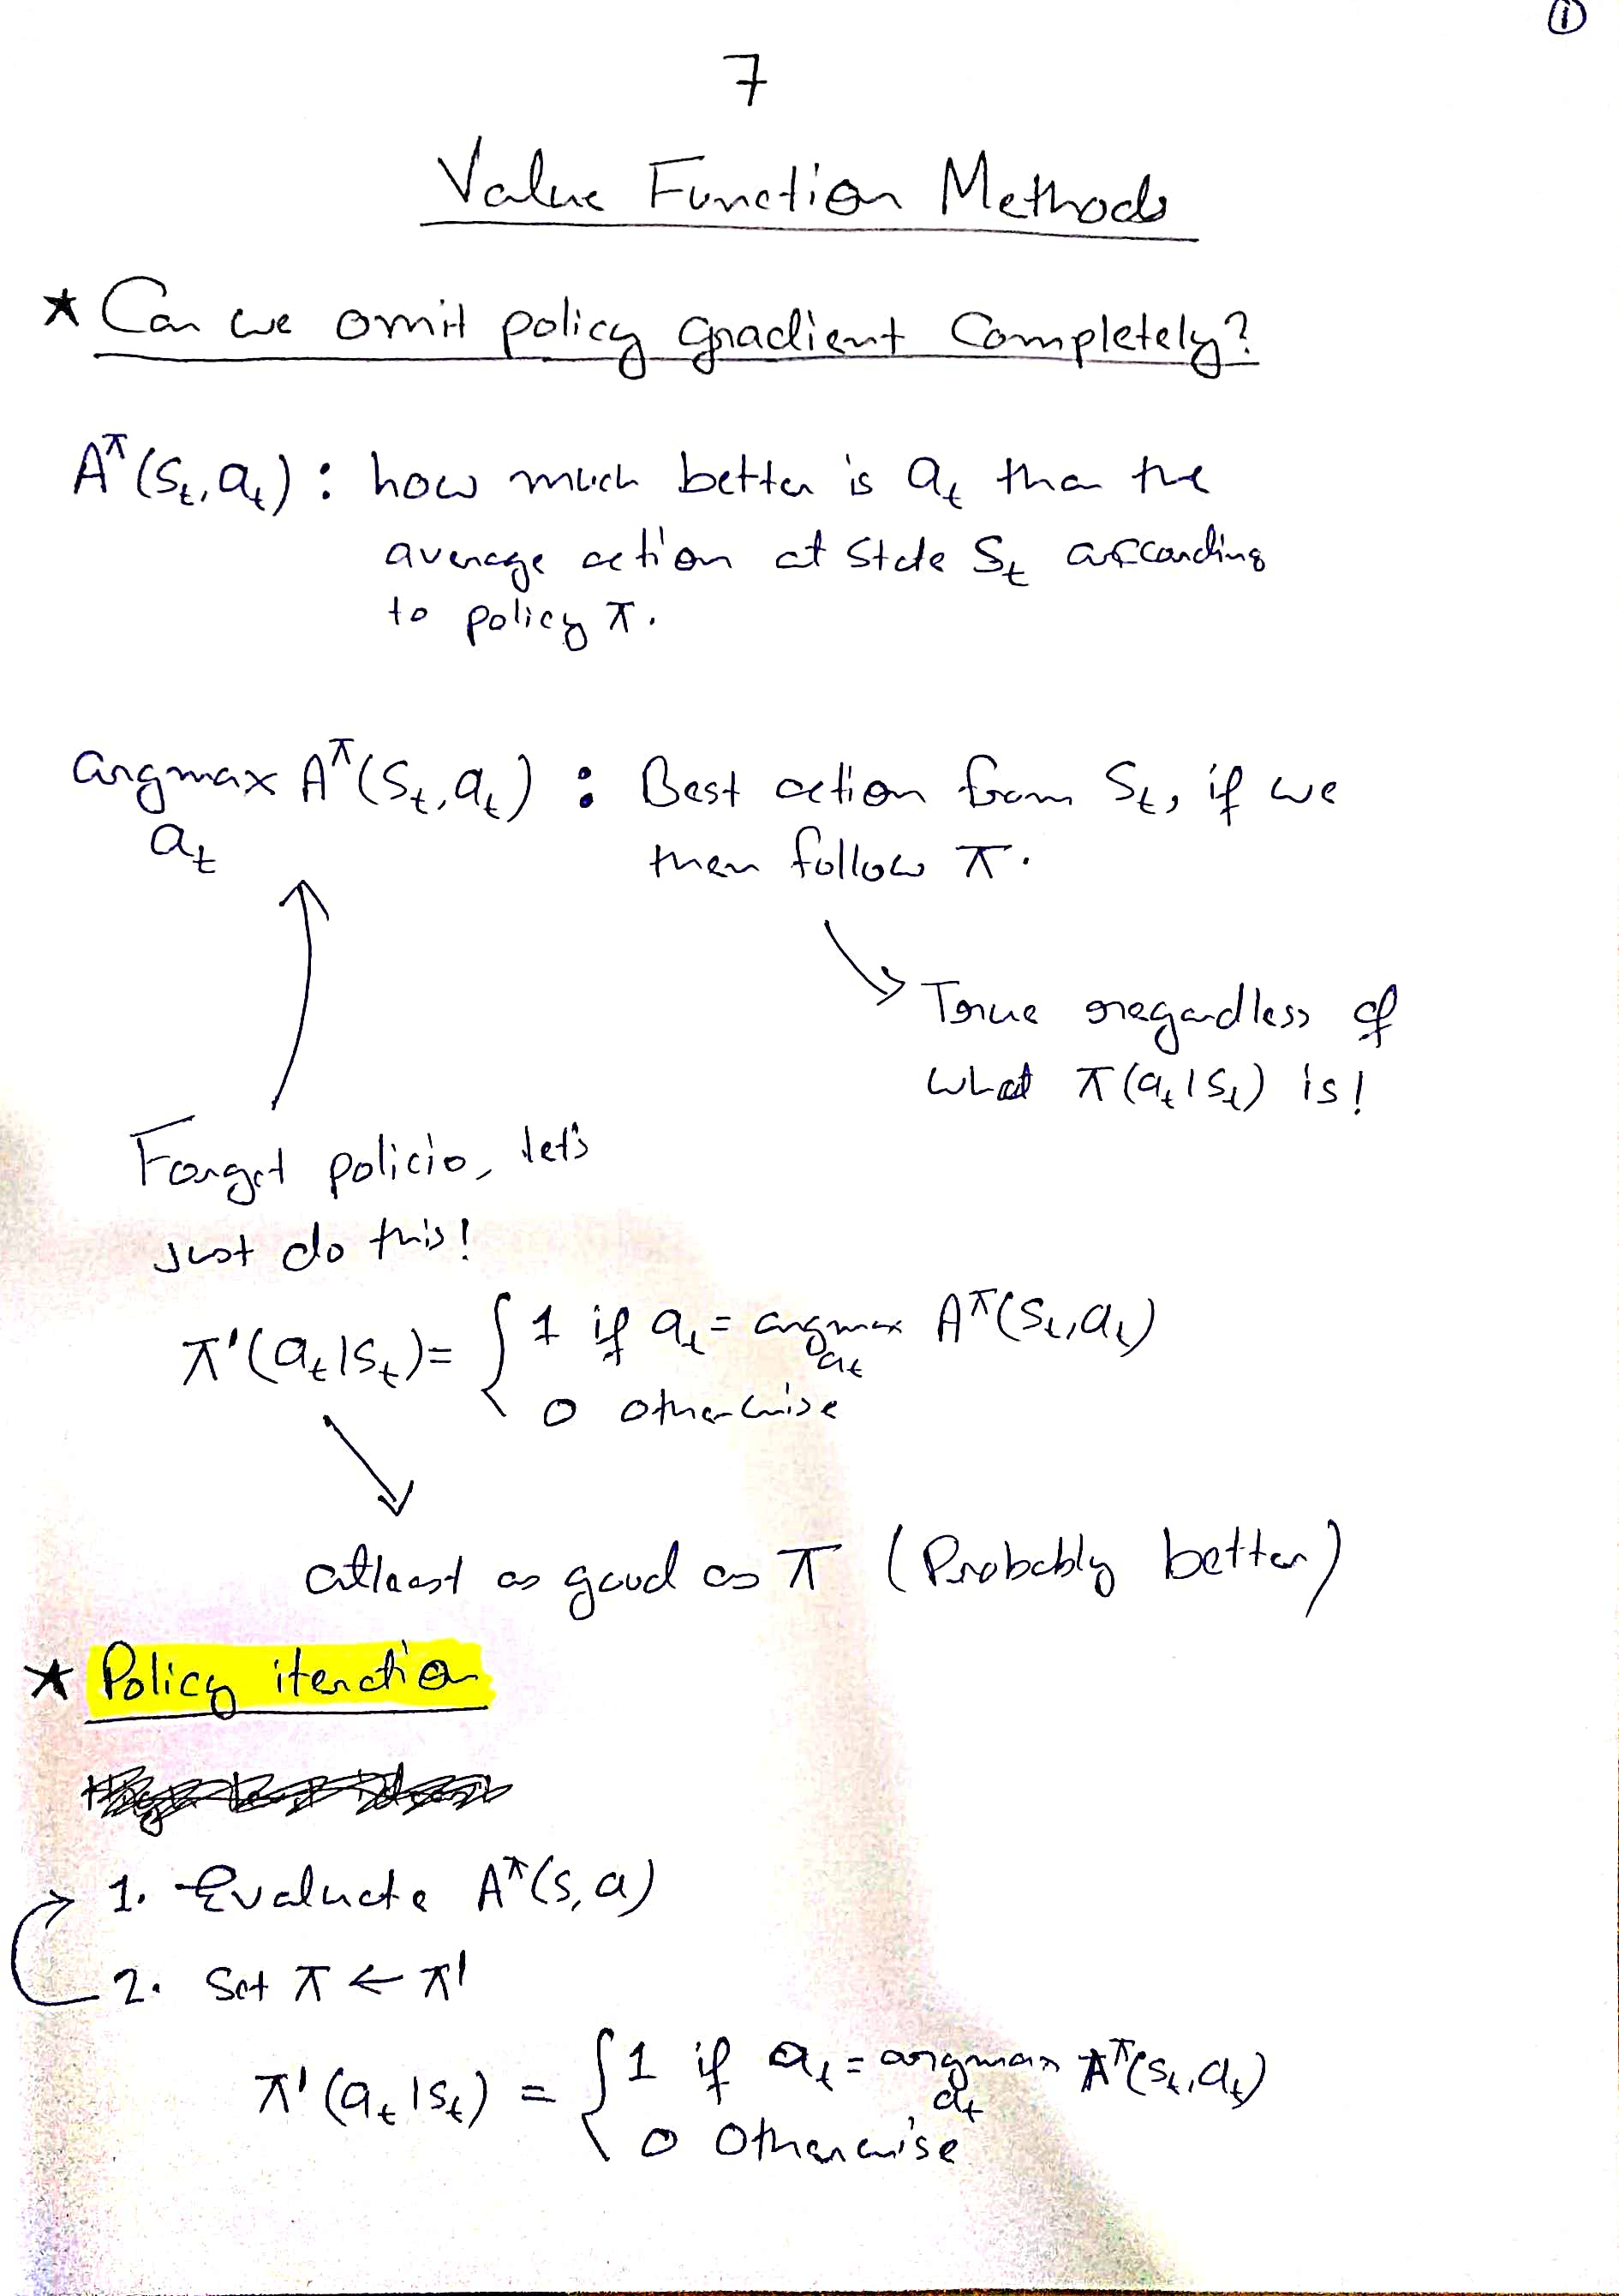 ①
7
Value Function Methods
★ Can we omit policy gradient Completely?
A^π(s_t, a_t) : how much better is a_t than the
average action at state s_t according
to policy π.
argmax A^π(s_t, a_t) : Best action from s_t, if we
a_t then follow π.
True regardless of
what π(a_t|s_t) is!
Forget policies, let's
Just do this!
π'(a_t|s_t) = { 1 if a_t = argmax A^π(s_t, a_t)
a_t
0 otherwise
atleast as good as π (Probably better)
★ Policy iteration
1. Evaluate A^π(s, a)
2. Set π ← π'
π'(a_t|s_t) = { 1 if a_t = argmax A^π(s_t, a_t)
a_t
0 Otherwise